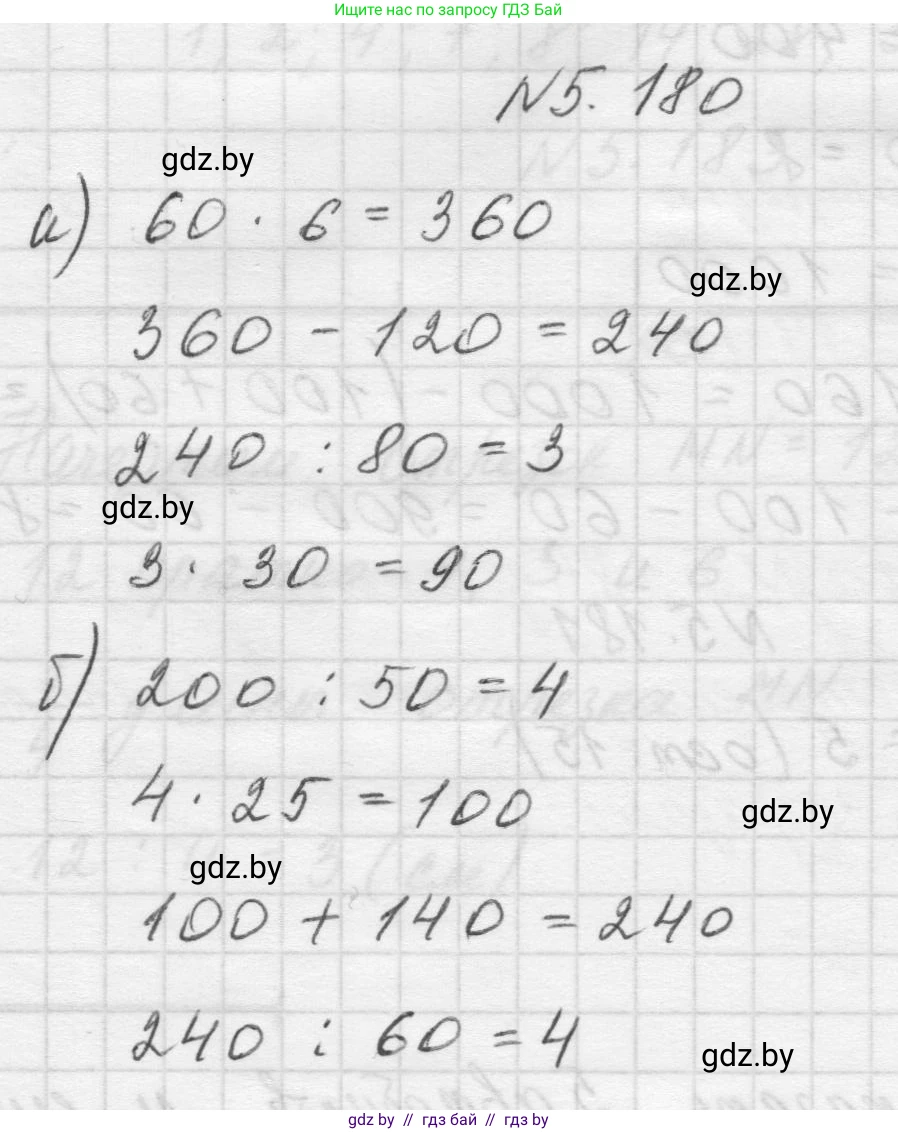 Ищите нас по запросу ГДЗ Бай
N5. 180
gdz.by
а) 60 · 6 = 360
gdz.by
360 - 120 = 240
240 : 80 = 3
gdz.by
3 · 30 = 90
б) 200 : 50 = 4
4 · 25 = 100
gdz.by
gdz.by
100 + 140 = 240
240 : 60 = 4
gdz.by
gdz.by // гдз бай // гдз by